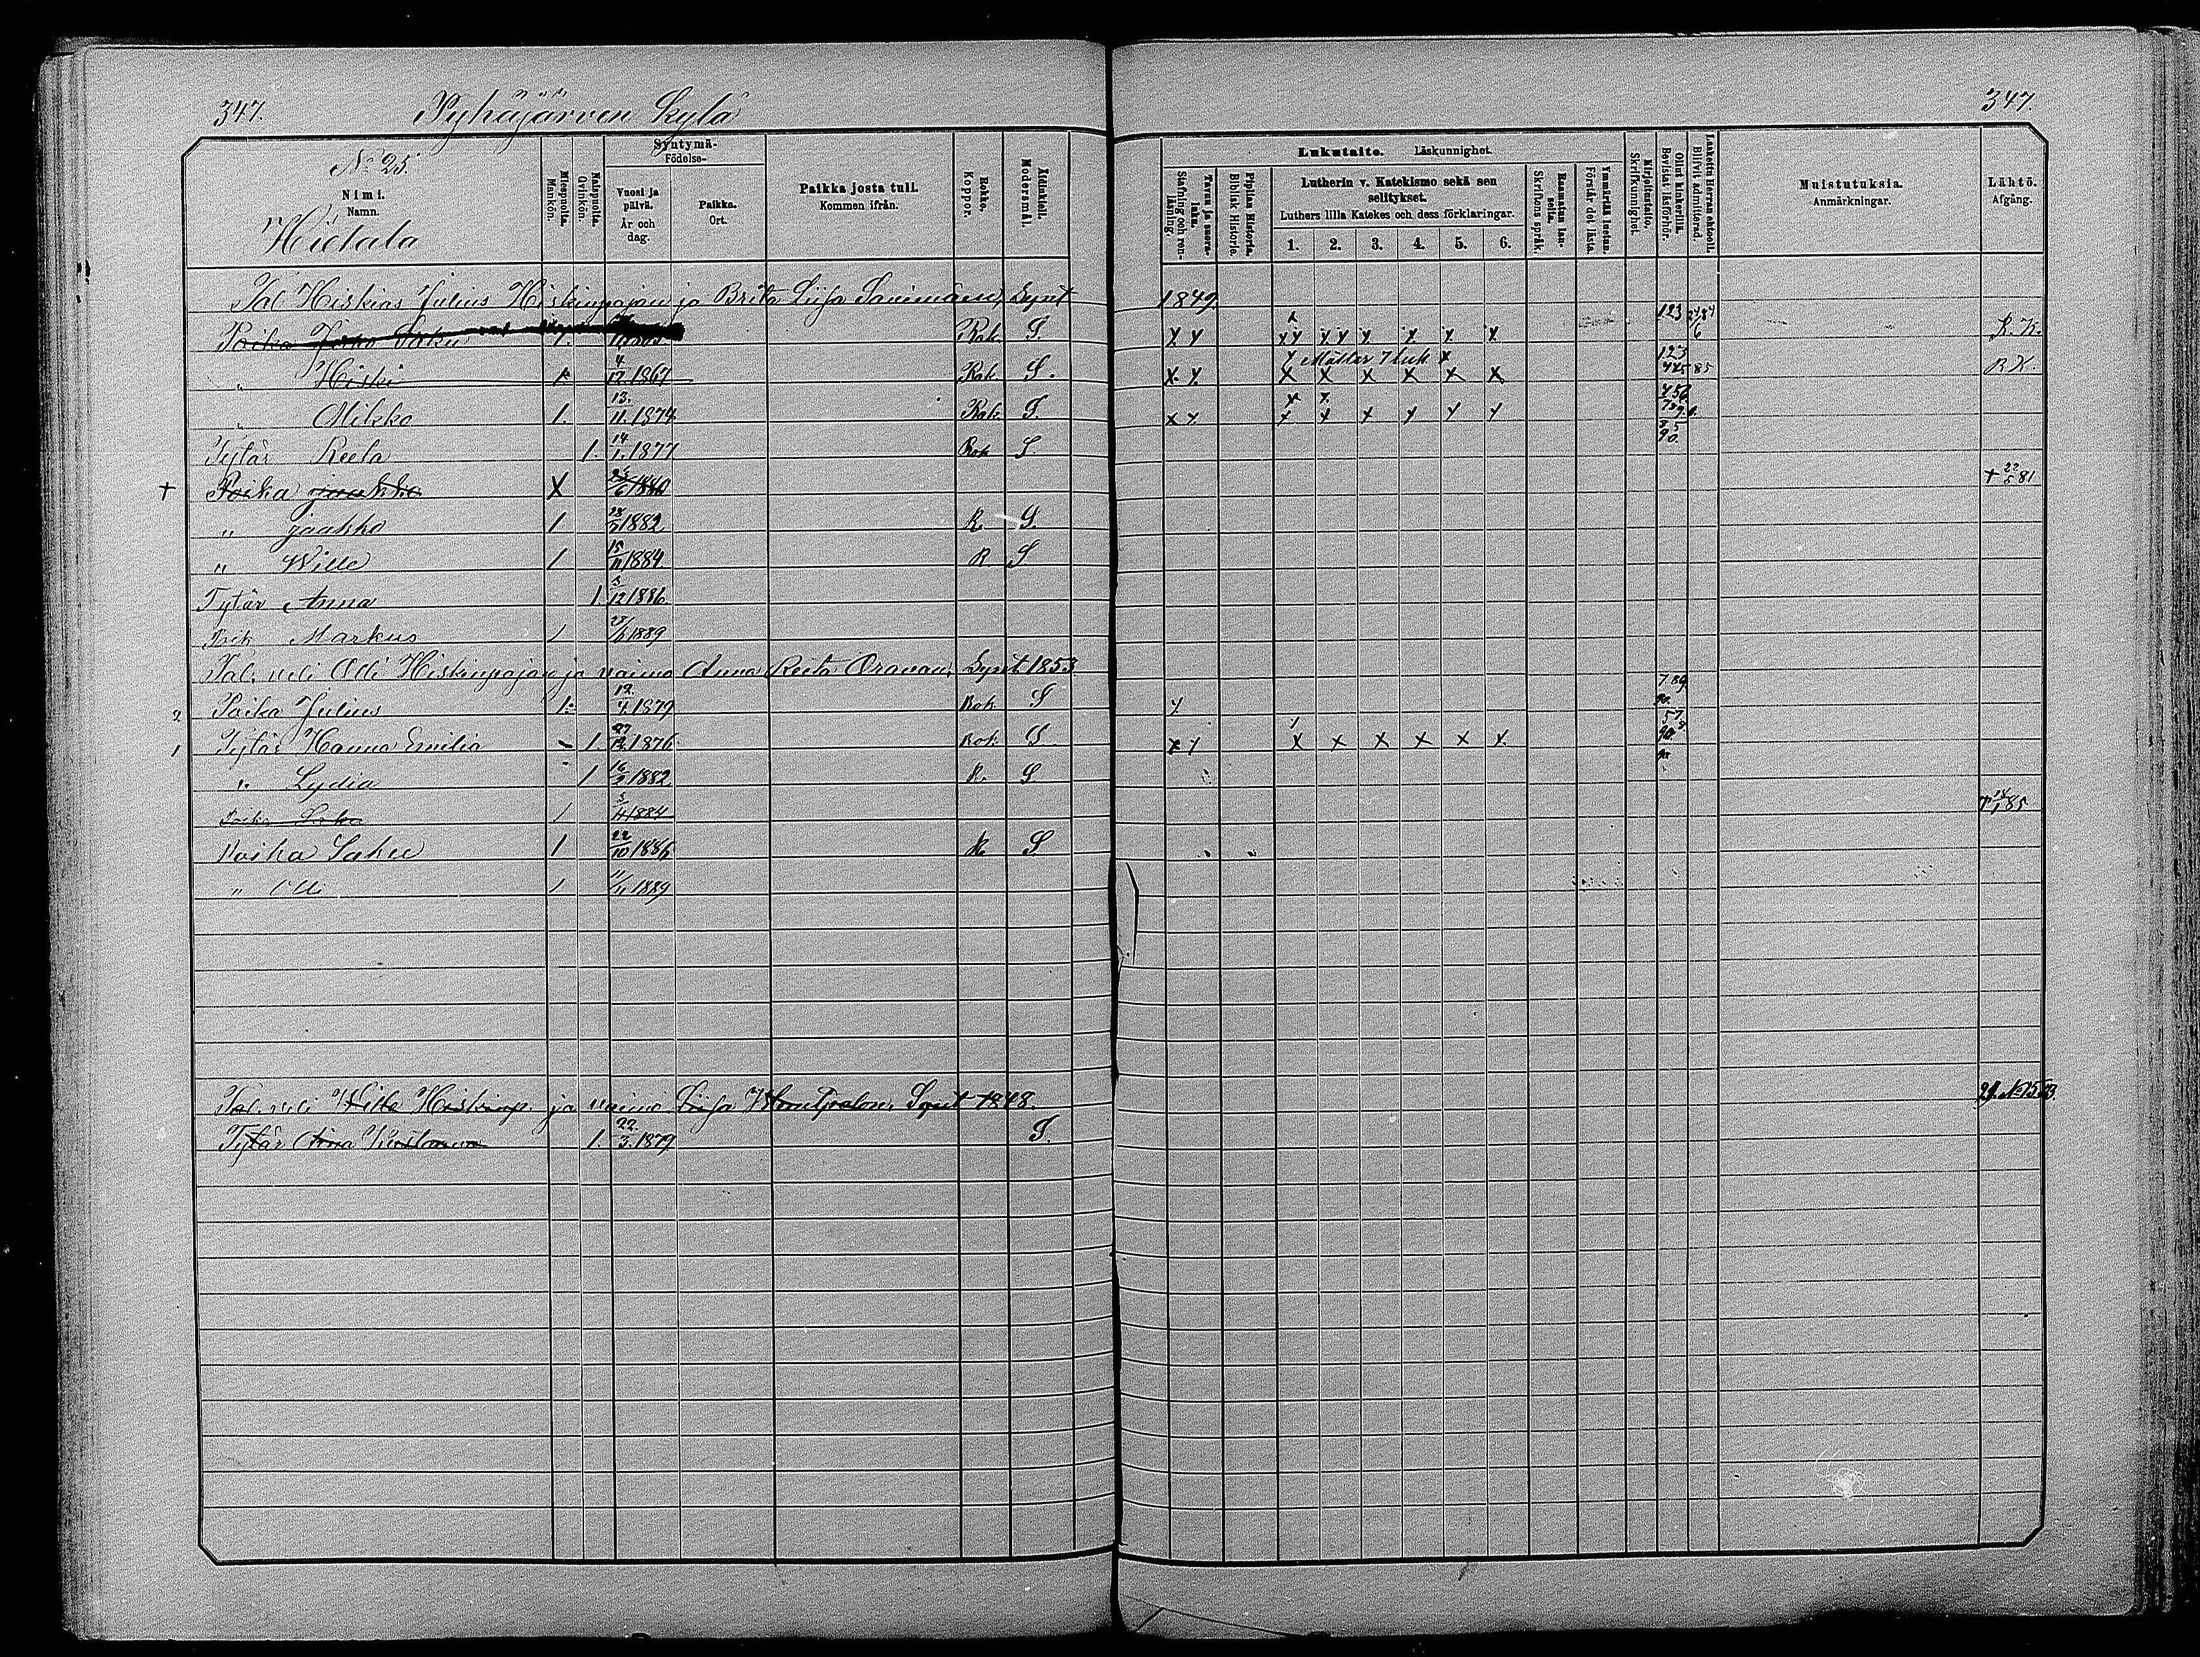 347. Pyhäjärven kylä 347.
No 25.
Nimi.
Namn.
Hietala
Miespuolia. Mankön.
Naispuolia. Qvinkön.
Syntymä-
Födelse-
Vuosi ja päivä.
År och dag.
Paikka.
Ort.
Paikka josta tuli.
Kommen ifrån.
Rokko. Koppor.
Äidinkieli. Modersmål.
Lukutaito. Läskunnighet.
Tavau ja suora- luku. Stafning och ren- läsning.
Piplian Historia. Biblisk Historie.
Lutherin v. Katekismo sekä sen
selitykset.
Luthers lilla Katekes och dess förklaringar.
1. 2. 3. 4. 5. 6.
Raamatun lau- seita. Skriftens språk.
Ymmärtää luetun. Förstår det lästa.
Kirjoitustaito. Skrifkunnighet.
Ollut kinkerillä. Bevistat läsförhör.
Laskettu Herran ehtoolle. Blifvit admitterad.
Muistutuksia.
Anmärkningar.
Lähtö.
Afgång.
Tal. Hiskias Julius Hiskinpojan ja Brita Liisa Synt 1849.
Poika Saku 1. Rok. S. x x x x x x x x x x 123 R. K.
" Hiski 1. 4/12 1867 Rok S. x x Mästar 7 luk x x x x x x x 123 85 R K.
" Mikko 1. 13/11. 1874 Rok S. x x x x x x x x x x
Tytär Reeta 1. 14/1. 1877 Rok S. 90.
+ Poika Jaakko X 6 1880 + 22/5 81
" Jaakko 1 28 1882 R. S.
" Wille 1 15/11 1884 R S
Tytär Anna 1. 3/12 1886.
Poik Markus 1 1889
Tal. veli Olli Hiskinpojan ja vaimo Anna Reeta Oravan, Synt 1853
2. Poika Julius 1. 12/4 1879 Rok S x 7.89
1 Tytär Hanna Emilia - 1. 27/12. 1876. Rok. S x x x x x x x x
" Lydia 1 16 1882 R. S
Poika Saku 1 3 1884 85
Poika Saku 1 22/10 1886 R S
" Olli 1 11/11 1889
Tal. veli Wille Hiskinp. ja vaimo Liisa Synt 1848.
Tytär 1. 22/3. 1879 S.